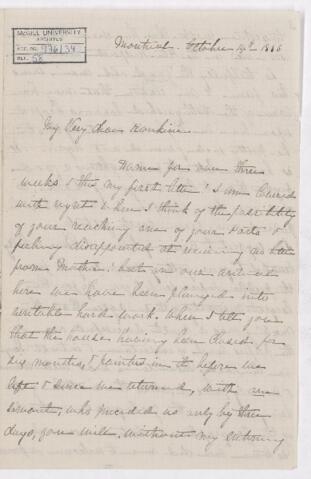 McGILL UNIVERSITY
ARCHIVES
ACC. NO. 936/34
REF. 58
Montreal. October 19th 18
My Very dear
Home for over three
weeks & this my first letter! I am
with when I think of the possibility
of your reaching one of your &
feeling disappointed at receiving no letter
from Mother: but on our arrival
here we have been plunged into
veritable hard work. When I tell you
that the house having been closed for
six months, & painted in it before we
left & since we returned, with one
servant, who preceded us only by three
days, you will, without my entering